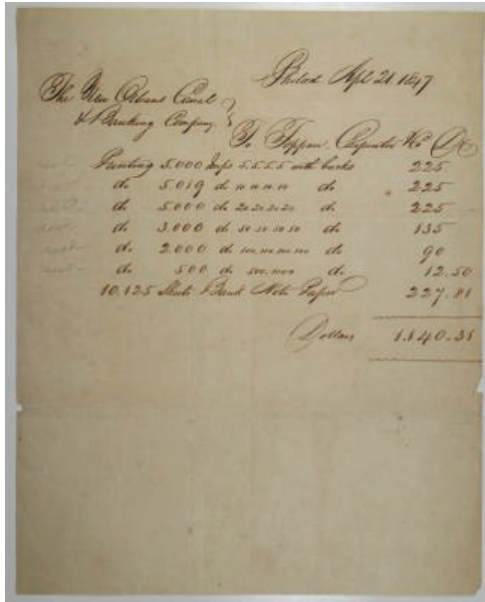 Philad Apl 21 1847
The New Orleans Canal
& Banking Company
To Toppan, Carpenter & Co Dr
Printing 5.000 Imps 5.5.5.5 with backs 225
do 5.019 do 10 10 10 10 do 225
do 5.000 do 20 20 20 20 do 225
do 3.000 do 50 50 50 50 do 135
do 2.000 do 100. 100 100 100 do 90
do 500 do 500. 1000 do 12.50
10.125 Sheets Bank Note Paper 227.81
Dollars 1.140.31